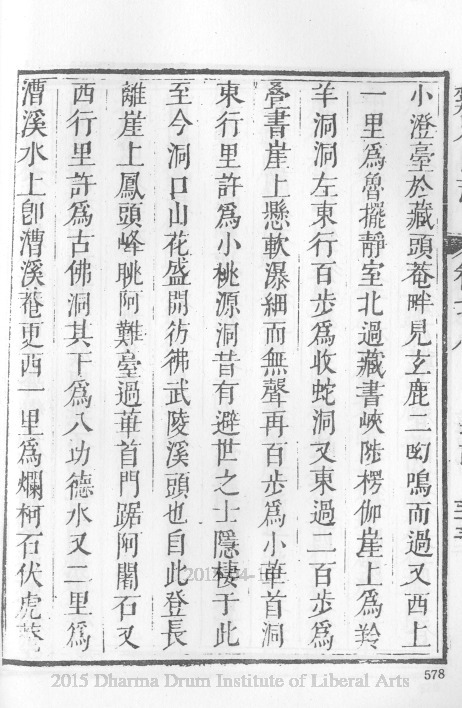 小澄臺於藏頭菴畔見玄鹿二呦鳴而過又西上
一里爲魯擺靜室北過藏書峽陟楞伽崖上爲羚
羊洞洞左東行百步爲收蛇洞又東過二百步爲
疊書崖上懸軟瀑細而無聲再百步爲小華首洞
東行里許爲小桃源洞昔有避世之士隱棲于此
至今洞口山花盛開彷彿武陵溪頭也自此登長
離崖上鳳頭峰眺阿難臺過華首門踞阿閦石又
西行里許爲古佛洞其下爲八功德水又二里爲
漕溪水上卽漕溪菴更西一里爲爛柯石伏虎菴
578
2015 Dharma Drum Institute of Liberal Arts